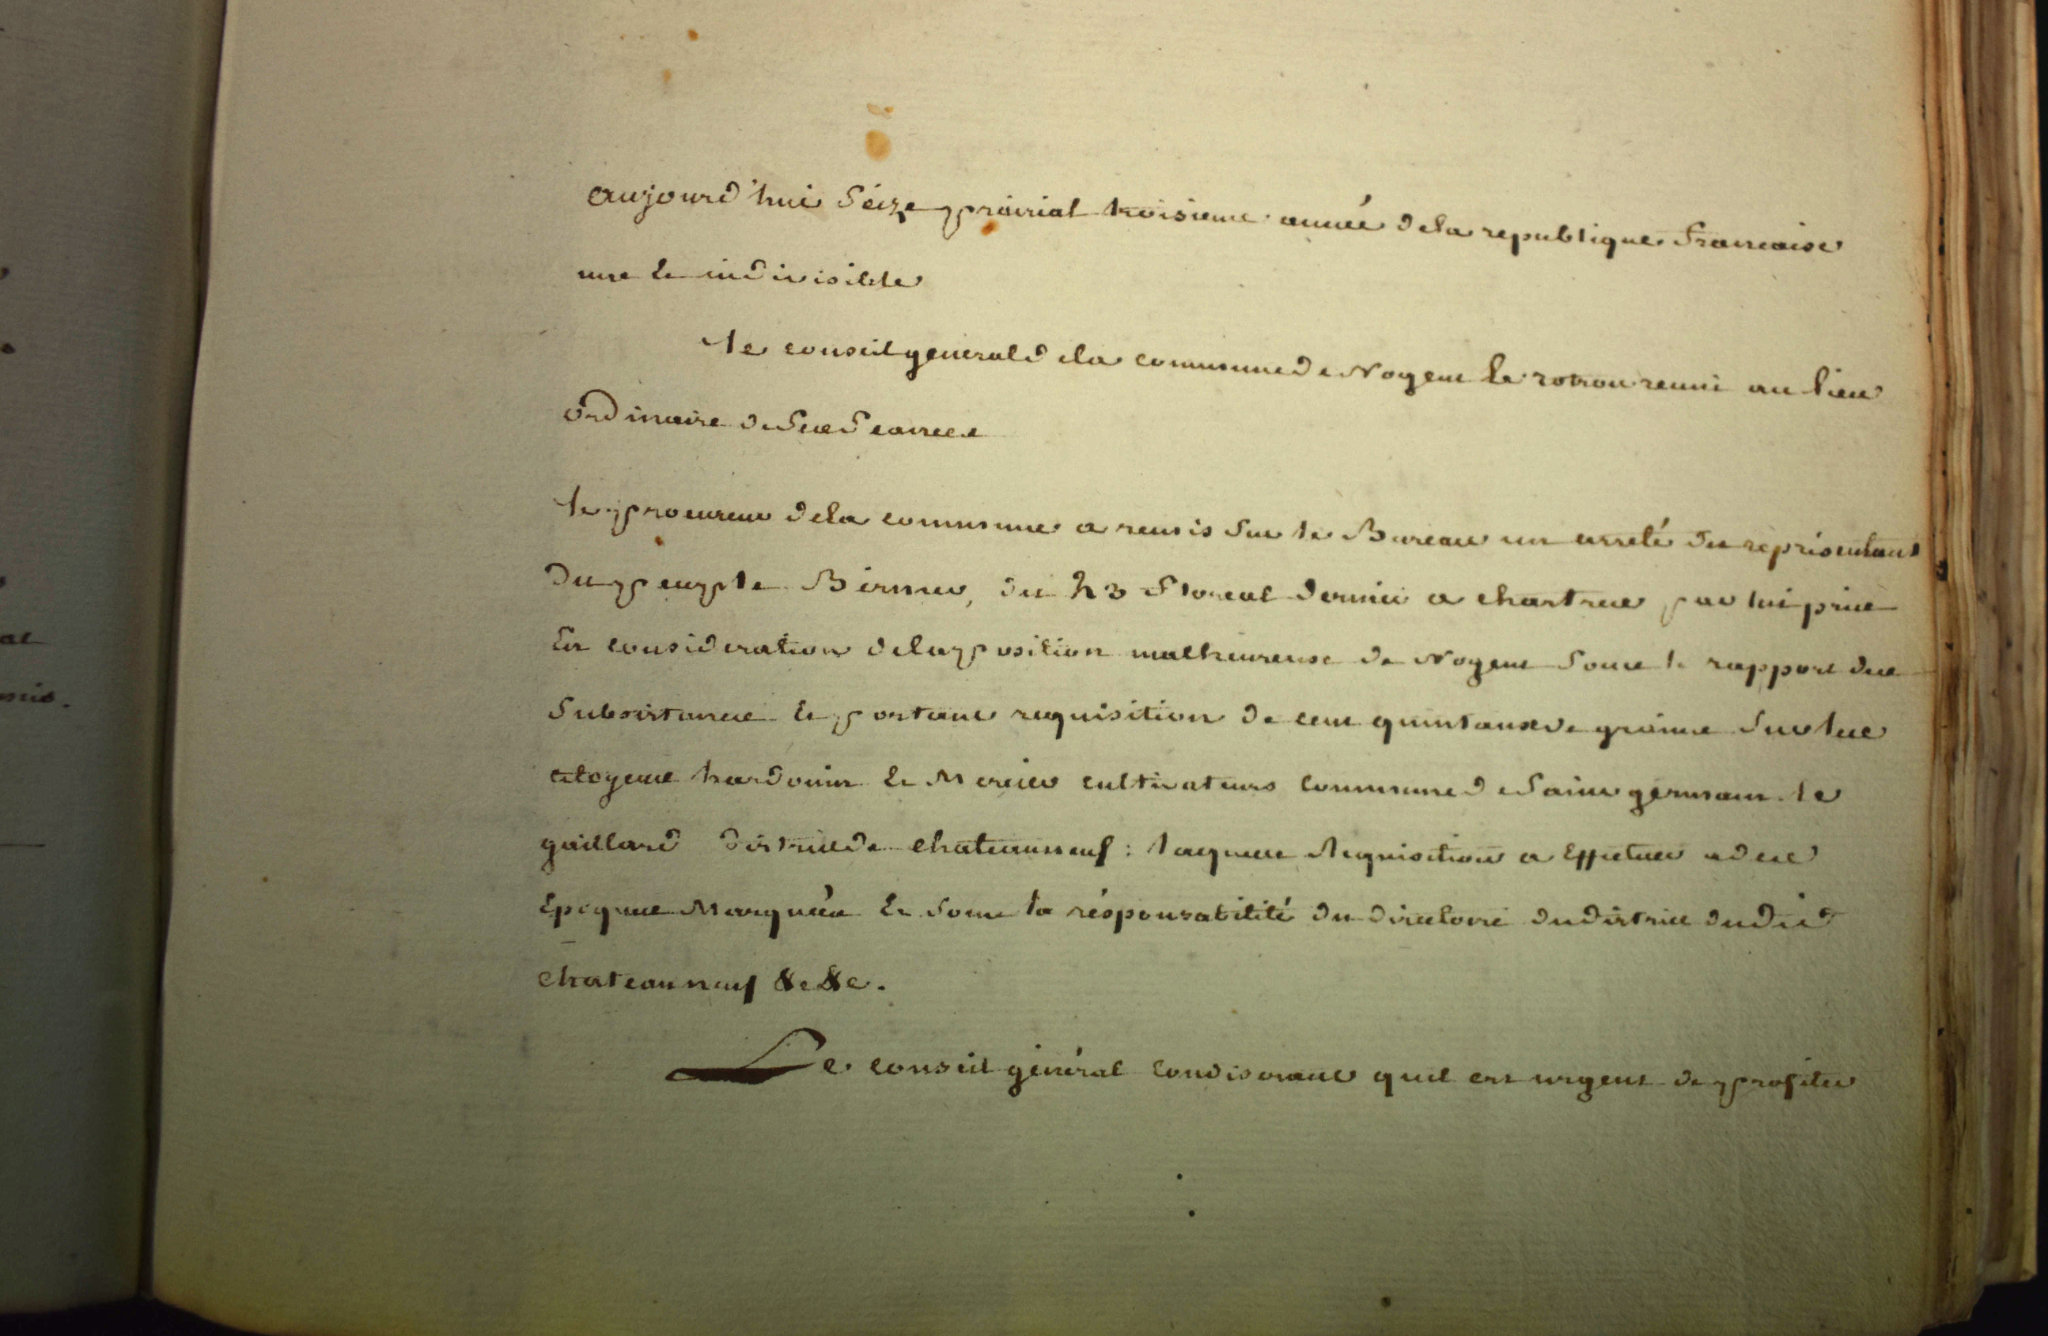 aujourd'hui Séize prairial troisieme année dela republique francaise
une et indivisible
le conseil general dela commune de Nogent le rotrou reuni au lieu
ordinaire de Ses Seances
le procureur dela commune a remis Sur le Bureau un arrêté du représentant
Du peuple Bernier, du 23 floreal dernier a chartres par lui pris
En consideration dela position malheureuse de Nogent Sous le rapport des
Subsistances et portant requisition de cent quintaux de grains Sur les
citoyens hardouin et Mercier cultivateurs commune de Saint germain le
gaillard District de chateauneuf : laquelle Requisition a Effectuer a des
Epoques Marquées et Sous la résponsabilité du directoire du district dudit
chateauneuf &c &c.
Le conseil général considerant quil est urgent de profiter